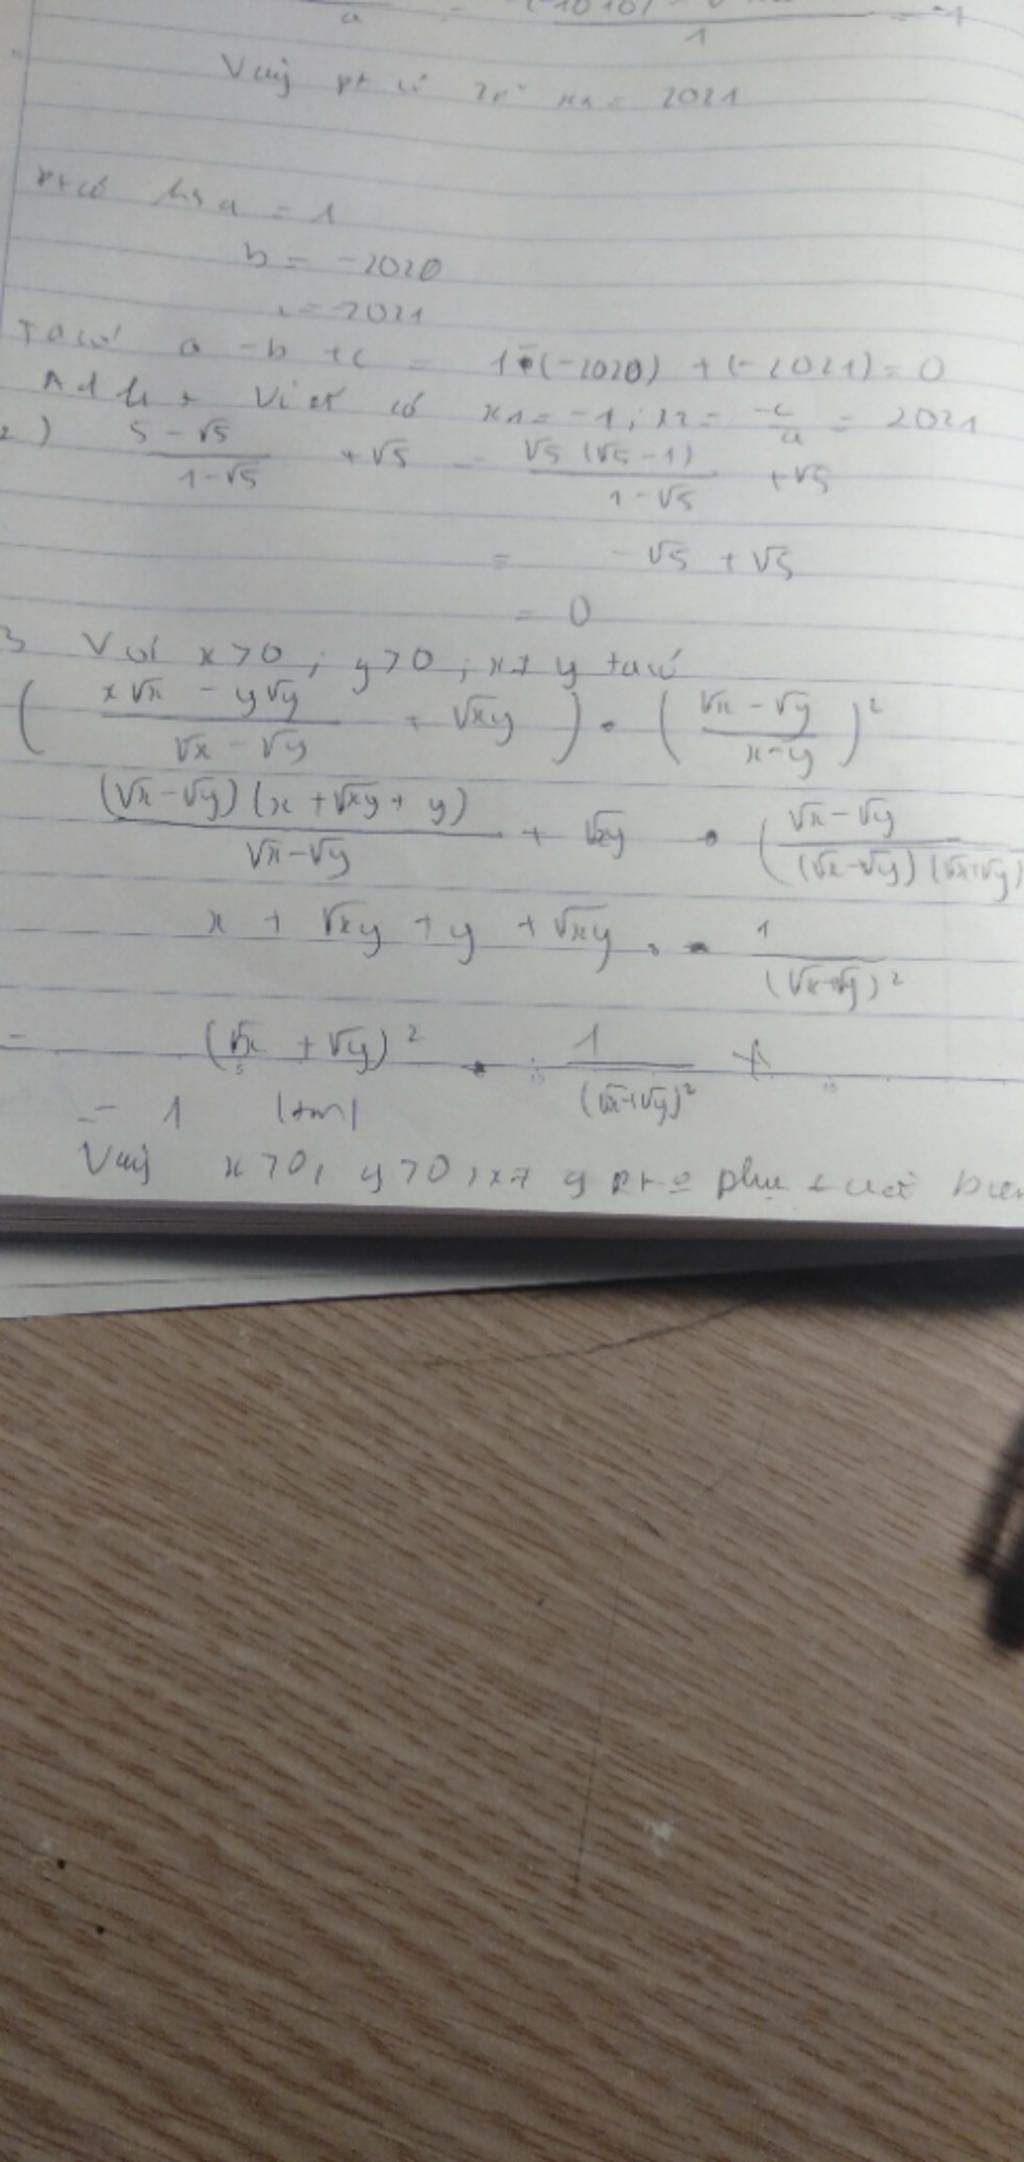 a 1
Vậy pt có x1 = 2021
pt có hs a = 1
b = -2020
c = -2021
Ta có a - b + c = 1 - (-2020) + (-2021) = 0
Viet có x1 = -1 ; x2 = -c/a = 2021
2) (5 - √5)/(1 - √5) + √5 = (√5 (√5 - 1))/(1 - √5) + √5
= -√5 + √5
= 0
3 Với x > 0 ; y > 0 ; x ≠ y ta có
( (x√x - y√y)/(√x - √y) + √xy ) . ( (√x - √y)/(x - y) )²
((√x - √y)(x + √xy + y))/(√x - √y) + √xy . ( (√x - √y)/((√x - √y)(√x + √y)
x + √xy + y + √xy . 1/(√x + √y)²
= (√x + √y)² . 1/(√x + √y)²
= 1 (tm)
Vậy x > 0, y > 0, x ≠ y phụ thuộc biến